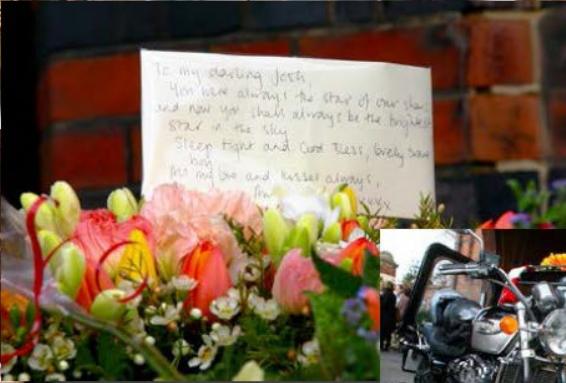 To my darling Josh,
You were always the star of our show
and now you shall always be the brightest
star in the sky
Sleep tight and God Bless, lovely brave
boy
All my love and kisses always,
xxxx